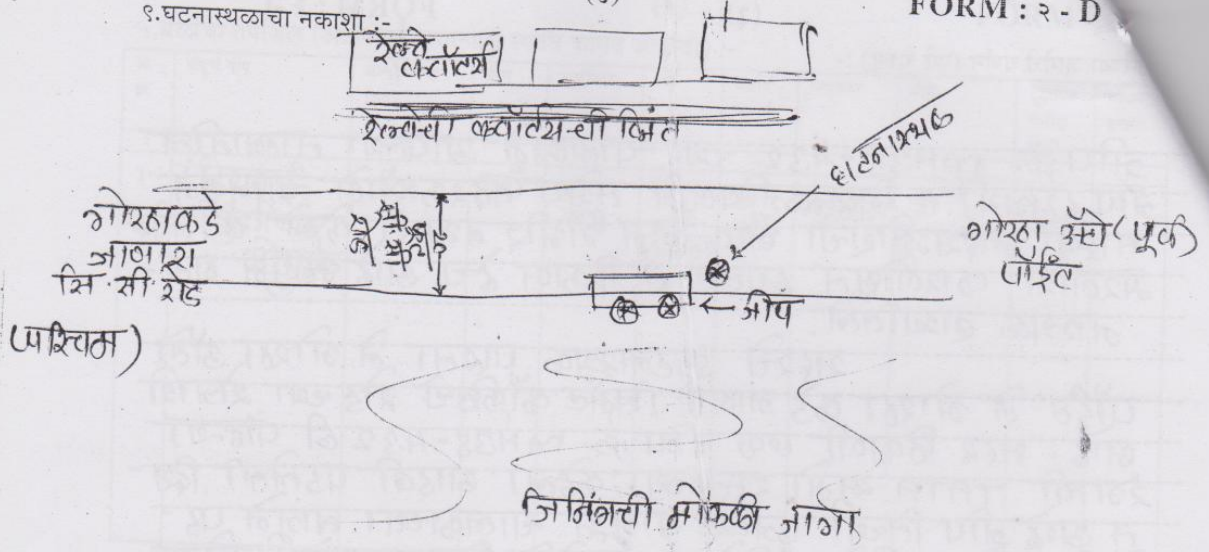 FORM : २ - D
९.घटनास्थळाचा नकाशा :-
रेल्वे
क्वॉर्टर्स
रेल्वेची क्वॉर्टर्स-ची भिंत
घटनास्थळ
गोरठाकडे
जाणारा
सि.सी.रोड
(पश्चिम)
रोड
गोरठा (पूर्व)
पॉईंट
← जीप
जिनिंगची मोकळी जागा